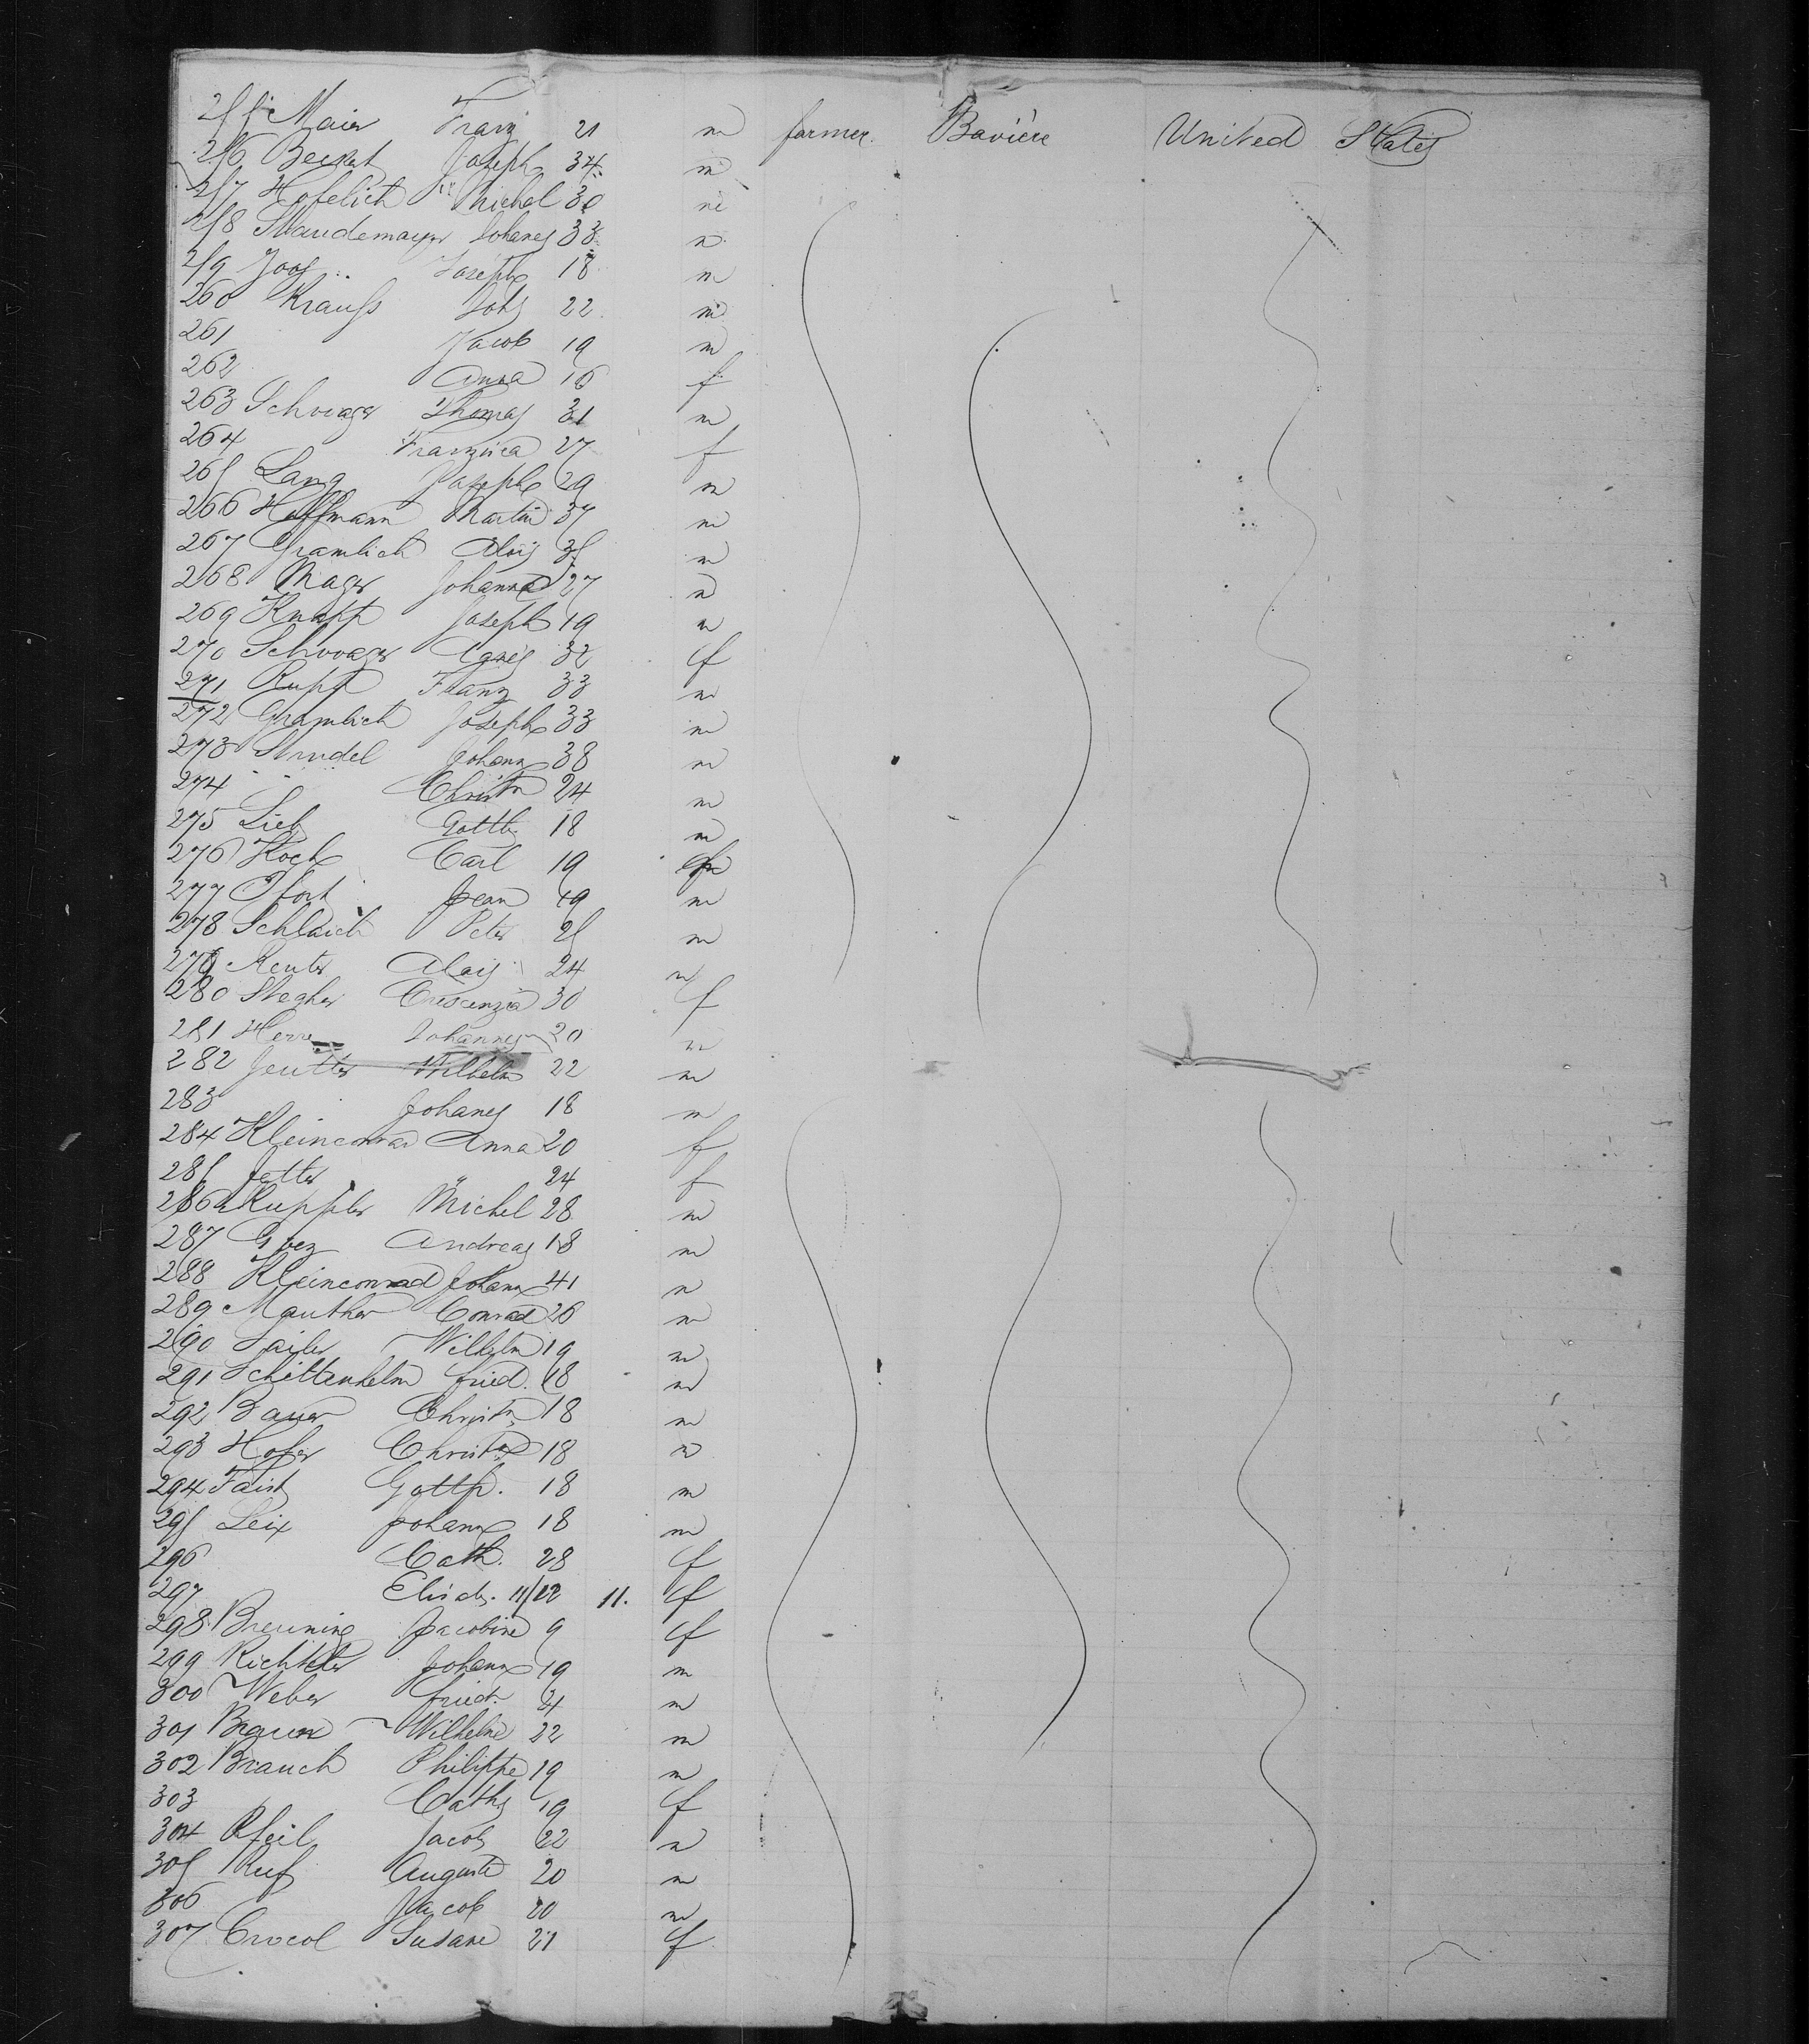 255 Maier Franz 21 m farmer. Bavière United States
256 Joseph 34 m
257 Hofelich Michel 30 m
258 Johanes 33 m
259 Joos Joseph 18 m
260 Krauss Johs 22 m
261 Jacob 19 m
262 Anna 16 f
263 Schwager Thomas 31 m
264 Franzisca 27 f
265 Lang Joseph 29 m
266 Hoffmann Martin 37 m
267 Gramlich Alois 35 m
268 Mager Johanna 27 m
269 Knapp Joseph 19 m
270 Schwager 32 f
271 Rupp Franz 33 m
272 Gramlich Joseph 33 m
273 Strudel Johann 38 m
274 " " Christn 24 m
275 Lieb Gottlb 18 m
276 Koch Carl 19
277 Pfort Jean 19 m
278 Schlaich Peter 25 m
279 Reuter Alois 24 m
280 Stegher Crescenzia 30 f
281 Herre Johannes 20 m
282 Jeutter Wilhelm 22 m
283 Johanes 18 m
284 Kleinconrad Anna 20 f
285 Jetter " 24 f
286 Kuppler Michel 28 m
287 Andreas 18 m
288 Kleinconrad Johann 41 m
289 Mauther Conrad 26 m
290 Sailer Wilhelm 19 m
291 Schittenhelm fried. 18 m
292 Bauer Christn 18 m
293 Hofer Christn 18 m
294 Faist Gottfr. 18 m
295 Leix Johann 18 m
296 Cath. 28 f
297 Elisab. 11/12 11. f
298 Breuning Jacobine 9 f
299 Richter Johann 19 m
300 Weber fried. 21 m
301 Braun Wilhelm 22 m
302 Brauch Philippe 19 m
303 Cath 19 f
304 Pfeil Jacob 22 m
305 Ruf Auguste 20 m
306 Jacob 20 m
307 Crocol Susane 21 f